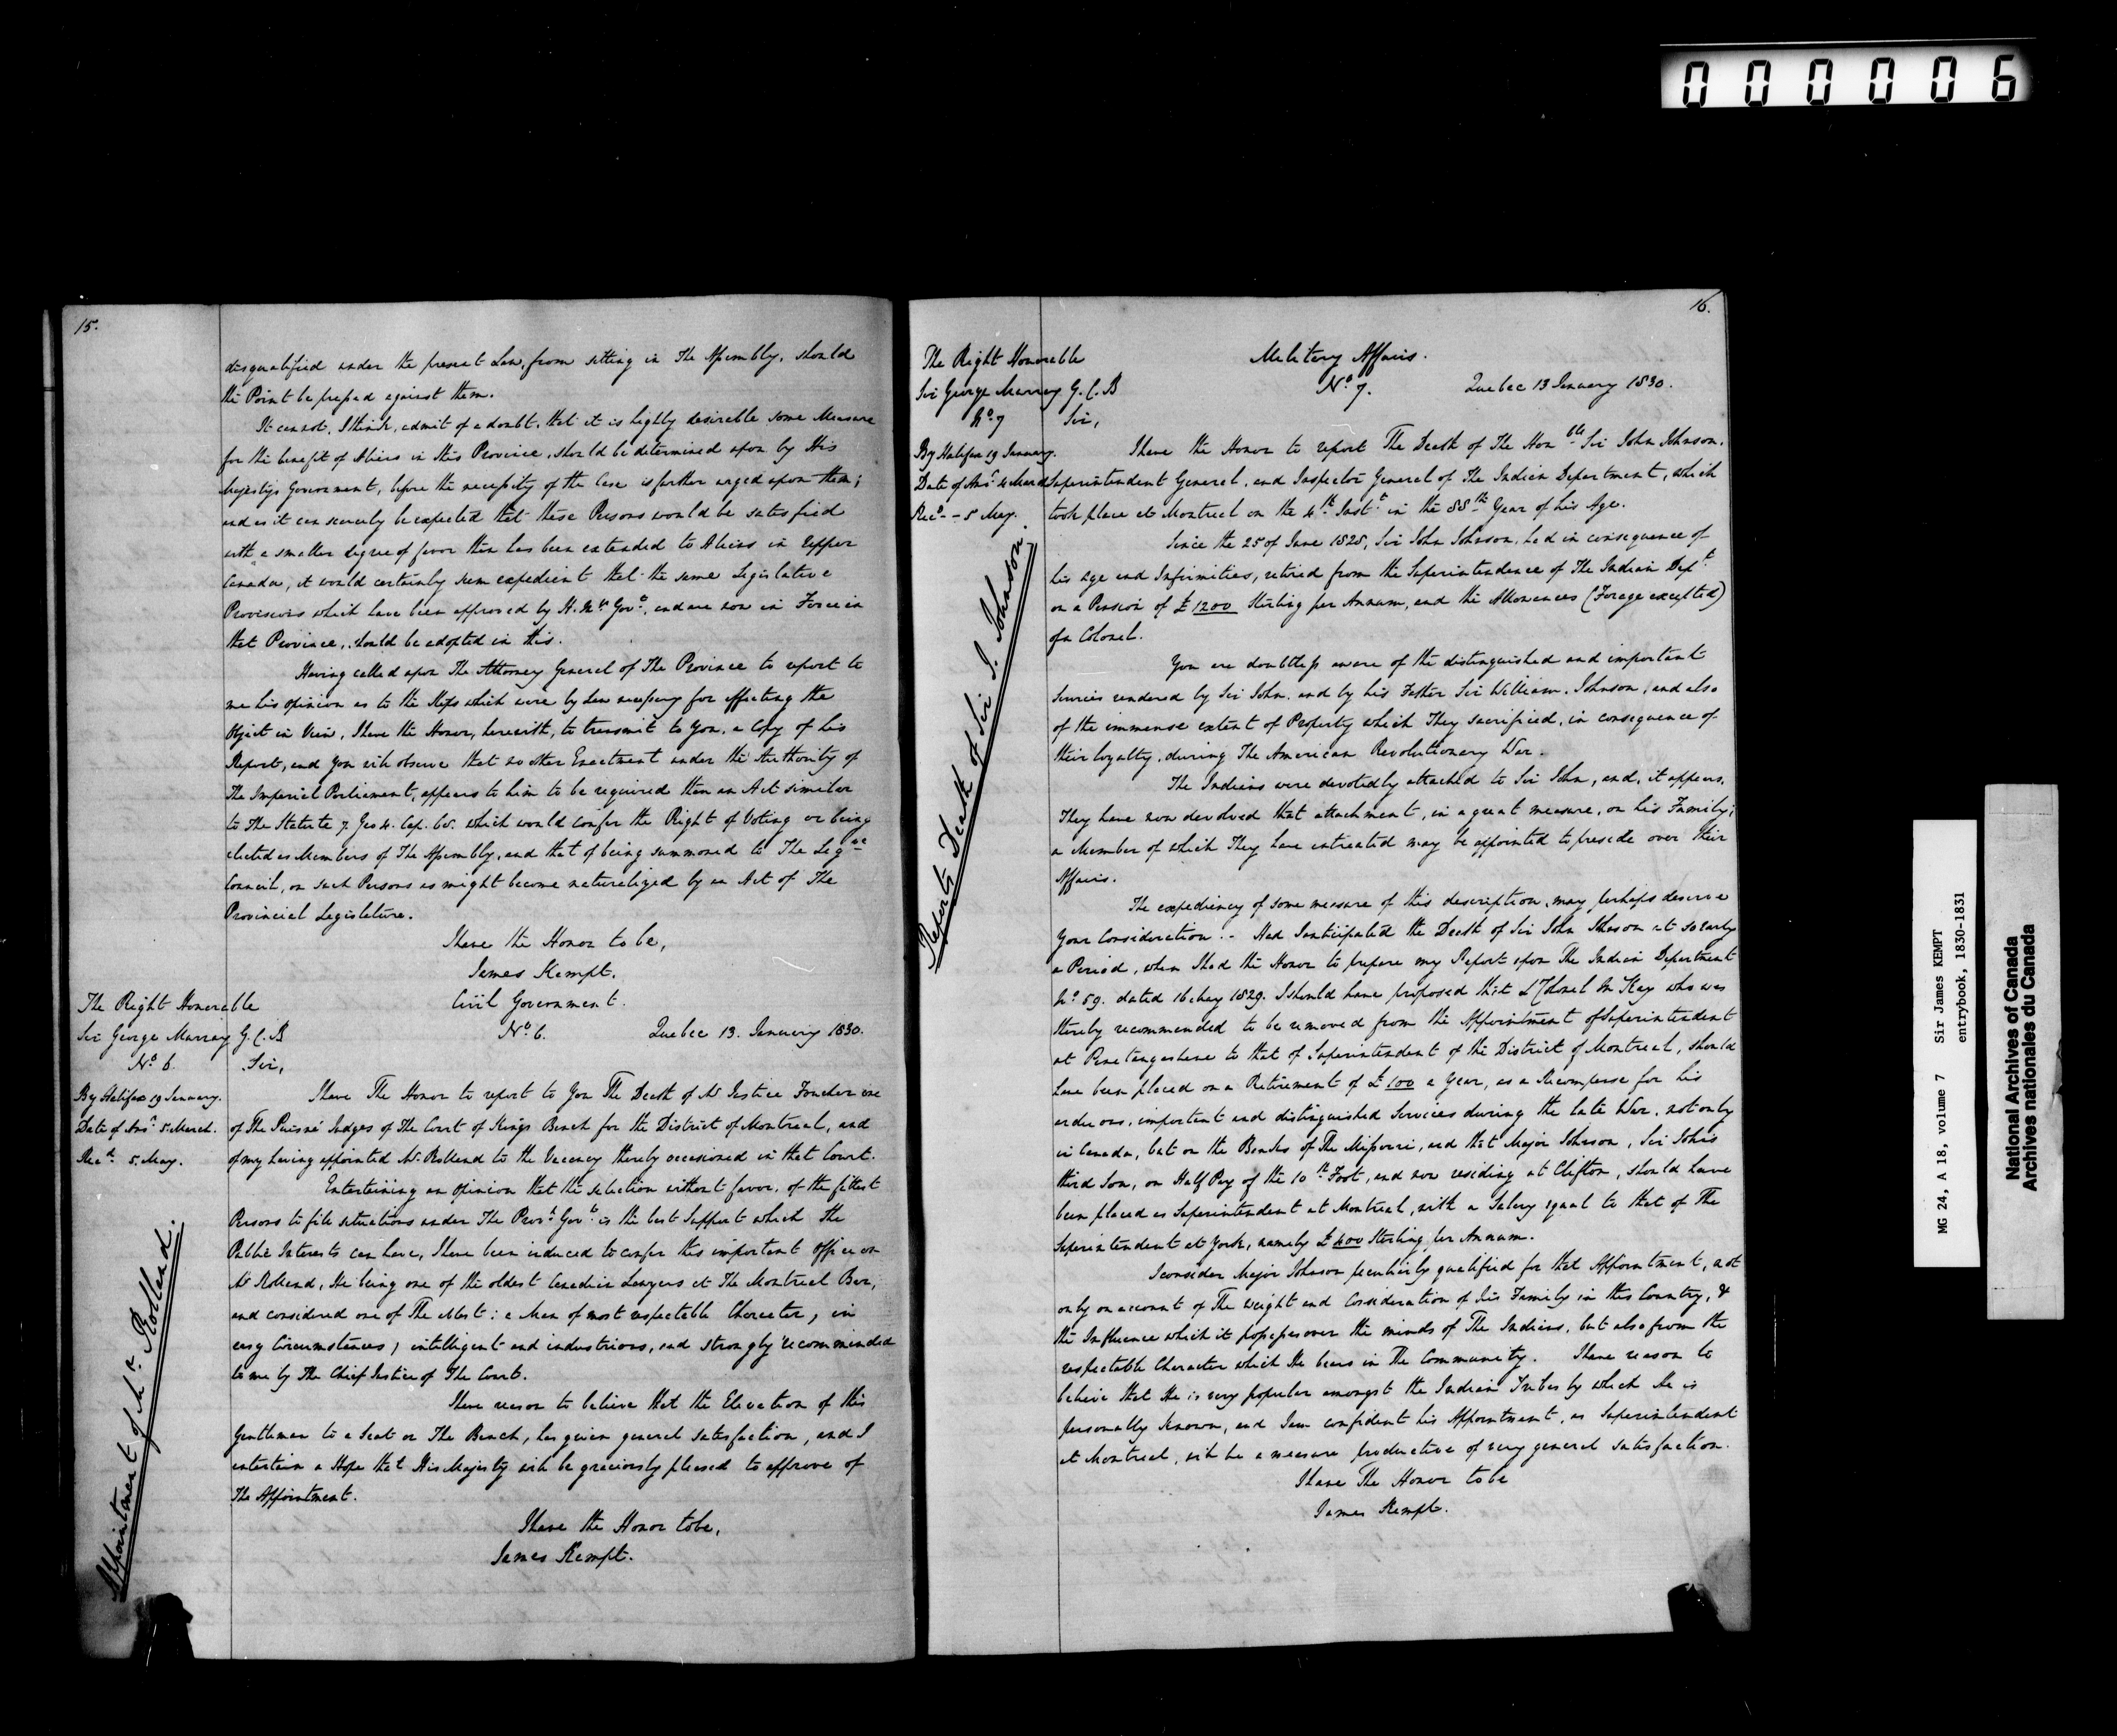 000006
15.
disqualified under the present Law, from sitting in The Assembly, should
the Point be pressed against them.
It cannot, I think, admit of a doubt, that it is highly desirable some Measure
for the benefit of Aliens in this Province, should be determined upon by His
Majestys Government, before the necessity of the Case is further urged upon them;
and as it can scarcely be expected that these Persons would be satisfied
with a smaller degree of favor than has been extended to Aliens in Upper
Canada, it would certainly seem expedient that the same Legislative
Provisions which have been approved by H. M's Govt, and are now in Force in
that Province, should be adopted in this.
Having called upon The Attorney General of The Province to report to
me his opinion as to the Steps which were by Law necessary for effecting the
Object in View, I have the Honor, herewith, to transmit to You, a Copy of his
Report, and You will observe that no other Enactment under the Authority of
The Imperial Parliament, appears to him to be required than an Act similar
to The Statute 7. Geo 4. Cap. 68. which would confer the Right of Voting or being
elected as Members of The Assembly, and that of being summoned to The Legve
Council, on such Persons as might become naturalized by an Act of The
Provincial Legislature.
I have the Honor to be,
James Kempt.
The Right Honorable
Sir George Murray G.C.B
No. 6.
By Halifax 19 January.
Date of Ansr 5 March.
Recd 5. May.
Appointment of Mr. Rolland.
Civil Government.
No. 6. Quebec 13. January 1830.
Sir,
I have The Honor to report to You The Death of Mr Justice Foucher one
of The Puisné Judges of The Court of Kings Bench for the District of Montreal, and
of my having appointed Mr. Rolland to the Vacancy thereby occasioned in that Court.
Entertaining an opinion that the selection without favor, of the fittest
Persons to fill situations under The Provl Govt is the best Support which The
Public Interests can have, I have been induced to confer this important Office on
Mr Rolland, He being one of the oldest Canadian Lawyers at The Montreal Bar,
and considered one of The Ablest: a Man of most respectable Character, in
easy Circumstances; intelligent and industrious, and strongly recommended
to me by The Chief Justice of The Court.
I have reason to believe that the Elevation of this
Gentleman to a Seat on The Bench, has given general satisfaction, and I
entertain a Hope that His Majesty will be graciously pleased to approve of
The Appointment.
I have the Honor to be,
James Kempt.
16.
The Right Honorable
Sir George Murray G.C.B
No. 7
By Halifax 19 January.
Date of Ansr 4 March
Recd - 5 May.
Reports Death of Sir J. Johnson.
Military Affairs.
No. 7. Quebec 13 January 1830.
Sir,
I have the Honor to report The Death of The Honble Sir John Johnson,
Superintendent General, and Inspector General of The Indian Department, which
took place at Montreal on the 4th Inst in the 88th Year of his Age.
Since the 25 of June 1828, Sir John Johnson, had in consequence of
his Age and Infirmities, retired from the Superintendence of The Indian Dept
on a Pension of £1200 Sterling per Annum, and the Allowances (Forage excepted)
of a Colonel.
You are doubtless aware of the distinguished and important
services rendered by Sir John, and by his Father Sir William Johnson, and also
of the immense extent of Property which They sacrificed, in consequence of
their loyalty, during The American Revolutionary War.
The Indians were devotedly attached to Sir John, and, it appears,
They have now devolved that attachment, in a great measure, on his Family;
a Member of which They have intreated may be appointed to preside over their
Affairs.
The expediency of some measure of this description, may perhaps deserve
Your Consideration:- Had I anticipated the Death of Sir John Johnson at so early
a Period, when I had the Honor to prepare my Report upon The Indian Department
No. 59. dated 16 May 1829. I should have proposed that Lt Colonel McKay who was
thereby recommended to be removed from the Appointment of Superintendent
at Penetanguishene to that of Superintendent of the District of Montreal, should
have been placed on a Retirement of £100 a Year, as a Recompense for his
arduous, important and distinguished Services during the late War, not only
in Canada, but on the Banks of The Missouri, and that Major Johnson, Sir John's
third Son, on Half Pay of the 10th Foot, and now residing at Clifton, should have
been placed as Superintendent at Montreal, with a Salary equal to that of The
Superintendent at York, namely £400 Sterling per Annum.
I consider Major Johnson peculiarly qualified for that Appointment, not
only on account of The weight and Consideration of his Family in this Country, &
the Influence which it possesses over the minds of The Indians, but also from the
respectable Character which He bears in The Community. I have reason to
believe that He is very popular amongst the Indian Tribes by which He is
personally known, and I am confident his Appointment, as Superintendent
at Montreal, will be a measure productive of very general satisfaction.
I have The Honor to be
James Kempt.
MG 24, A 18, volume 7 Sir James KEMPT
entrybook, 1830-1831
National Archives of Canada
Archives nationales du Canada